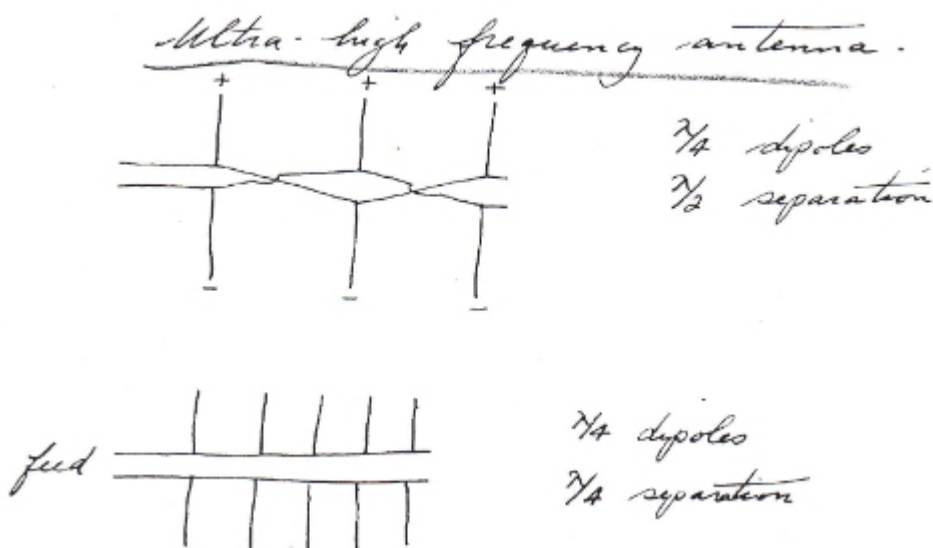 Ultra-high frequency antenna.
+ + +
λ/4 dipoles
λ/2 separation
- - -
λ/4 dipoles
feed
λ/4 separation